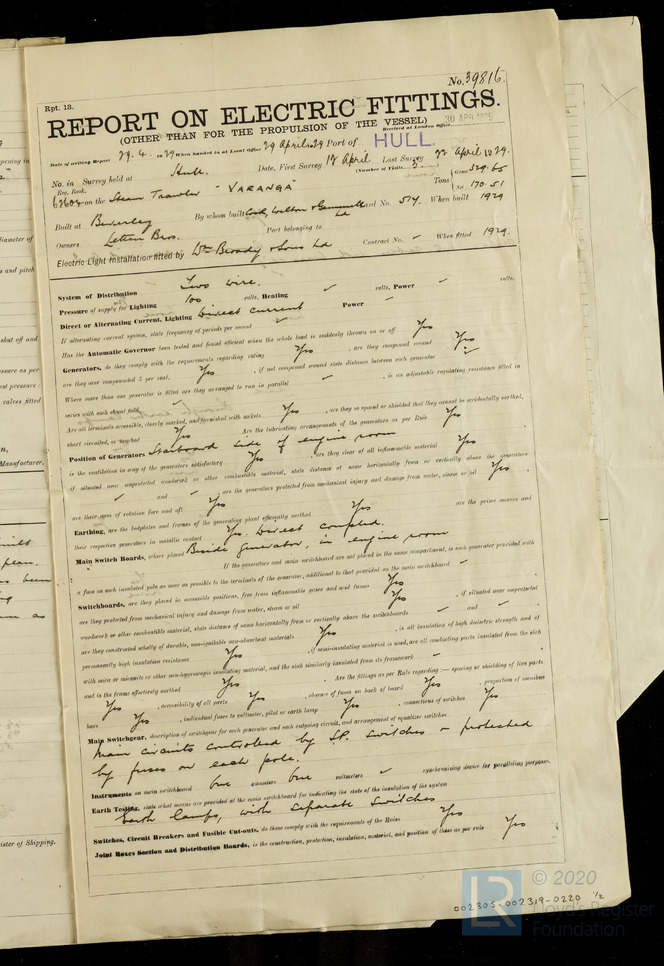 No. 39816.
Rpt. 13.
REPORT ON ELECTRIC FITTINGS.
(OTHER THAN FOR THE PROPULSION OF THE VESSEL)
Received at London Office 30 APR 1929
Date of writing Report 29. 4. 1929 When handed in at Local Office 29 April 1929 Port of HULL.
No. in Survey held at Hull. Date, First Survey 17 April Last Survey 22 April 1929.
Reg. Book. (Number of Visits 3.)
on the Steam Trawler "VARANGA" Tons Gross 329.65
Net 170.51
Built at Beverley By whom built Cook, Welton & Gemmell Ld Yard No. 514. When built 1929
Owners Letten Bros. Port belonging to
Electric Light Installation fitted by Wm Broady & Sons Ld Contract No. - When fitted 1929.
System of Distribution Two wire.
Pressure of supply for Lighting 100 volts, Heating ✓ volts, Power ✓ volts.
Direct or Alternating Current, Lighting Direct current Power ✓
If alternating current system, state frequency of periods per second
Has the Automatic Governor been tested and found efficient when the whole load is suddenly thrown on or off Yes
Generators, do they comply with the requirements regarding rating Yes, are they compound wound Yes
are they over compounded 5 per cent. Yes, if not compound wound state distance between each generator ✓
Where more than one generator is fitted are they arranged to run in parallel ✓, is an adjustable regulating resistance fitted in
series with each shunt field ✓
Are all terminals accessible, clearly marked, and furnished with sockets Yes, are they so spaced or shielded that they cannot be accidentally earthed,
short circuited, or touched Yes Are the lubricating arrangements of the generators as per Rule Yes
Position of Generators Starboard side of engine room
is the ventilation in way of the generators satisfactory Yes, are they clear of all inflammable material Yes
if situated near unprotected woodwork or other combustible material, state distance of same horizontally from or vertically above the generators
✓ and ✓ are the generators protected from mechanical injury and damage from water, steam or oil Yes
are their axes of rotation fore and aft Yes
Earthing, are the bedplates and frames of the generating plant efficiently earthed Yes are the prime movers and
their respective generators in metallic contact Yes. Direct coupled.
Main Switch Boards, where placed Beside generator, in engine room
If the generators and main switchboard are not placed in the same compartment, is each generator provided with
a fuse on each insulated pole as near as possible to the terminals of the generator, additional to that provided on the main switchboard ✓
Switchboards, are they placed in accessible positions, free from inflammable gases and acid fumes Yes
are they protected from mechanical injury and damage from water, steam or oil Yes, if situated near unprotected
woodwork or other combustible material, state distance of same horizontally from or vertically above the switchboards ✓ and ✓
are they constructed wholly of durable, non-ignitable non-absorbent materials Yes, is all insulation of high dielectric strength and of
permanently high insulation resistance Yes, if semi-insulating material is used, are all conducting parts insulated from the slab
with mica or micanite or other non-hygroscopic insulating material, and the slab similarly insulated from its framework ✓
and is the frame effectively earthed Yes Are the fittings as per Rule regarding:— spacing or shielding of live parts
Yes, accessibility of all parts Yes, absence of fuses on back of board Yes, proportion of omnibus
bars Yes, individual fuses to voltmeter, pilot or earth lamp Yes, connections of switches Yes
Main Switchgear, description of switchgear for each generator and each outgoing circuit, and arrangement of equalizer switches
Main circuits controlled by S.P. switches & protected
by fuses on each pole.
Instruments on main switchboard One ammeters One voltmeters ✓ synchronising device for paralleling purposes.
Earth Testing, state what means are provided at the main switchboard for indicating the state of the insulation of the system
Earth lamps, with separate switches
Switches, Circuit Breakers and Fusible Cut-outs, do these comply with the requirements of the Rules Yes
Joint Boxes Section and Distribution Boards, is the construction, protection, insulation, material, and position of these as per rule Yes
002305-002319-0220 1/2
LR © 2020
Lloyd's Register
Foundation